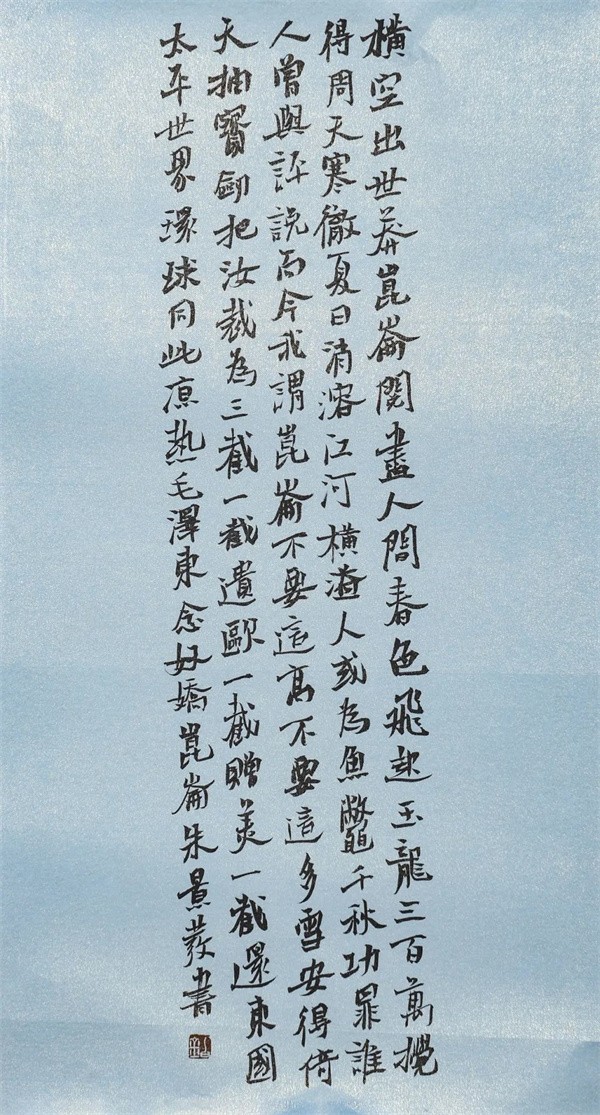 橫空出世莽崑崙閱盡人間春色飛起玉龍三百萬攪
得周天寒徹夏日消溶江河橫溢人或為魚鱉千秋功罪誰
人曾與評說而今我謂崑崙不要這高不要這多雪安得倚
天抽寶劍把汝裁為三截一截遺歐一截贈美一截還東國
太平世界環球同此凉熱毛澤東念奴嬌崑崙朱景教書